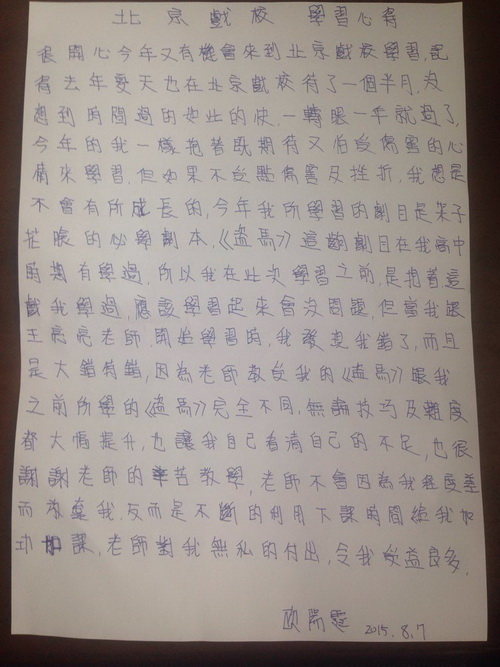 北京戲校 學習心得
很開心今年又有機會來到北京戲校學習,記
得去年夏天也在北京戲校待了一個半月,沒
想到時間過的如此的快,一轉眼一年就過了,
今年的我一樣抱著既期待又怕受傷害的心
情來學習,但如果不受點傷害及挫折,我想是
不會有所成長的,今年我所學習的劇目是架子
花臉的必學劇本,《盜馬》這齣劇目在我高中
時期有學過,所以我在此次學習之前,是抱著這
戲我學過,應該學習起來會沒問題,但當我跟
王亮亮老師,開始學習時,我發現我錯了,而且
是大錯特錯,因為老師教受我的《盜馬》跟我
之前所學的《盜馬》完全不同,無論技巧及難度
都大幅提升,也讓我自己看清自己的不足,也很
謝謝老師的辛苦教學,老師不會因為我程度差
而放棄我,反而是不斷的利用下課時間給我加
功加課,老師對我無私的付出,令我受益良多,
2015.8.7